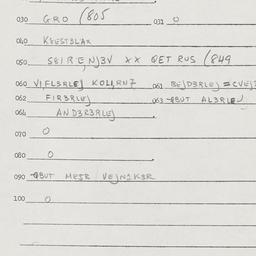 030 GRO (805 031 0
040 KVESTBLAR
050 SEIRENJBV XX QET RUS (849
060 VIFLBRLEJ KOLLRNZ 061 BEJDBRLEJ = CVEJ
062 FIRBRLEJ 063 QBUT ALBRLEJ
064 ANDBRBRLEJ
070 0
080 0
090 QBUT MESR VEJNIKBR
100 0